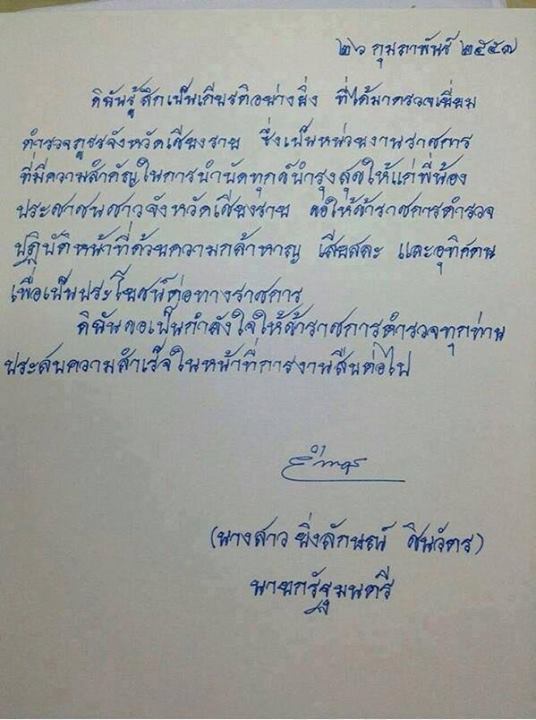 ๒๖ กุมภาพันธ์ ๒๕๕๗
ดิฉันรู้สึกเป็นเกียรติอย่างยิ่ง ที่ได้มาตรวจเยี่ยม
ตำรวจภูธรจังหวัดเชียงราย ซึ่งเป็นหน่วยงานราชการ
ที่มีความสำคัญในการบำบัดทุกข์บำรุงสุขให้แก่พี่น้อง
ประชาชนชาวจังหวัดเชียงราย ขอให้ข้าราชการตำรวจ
ปฏิบัติหน้าที่ด้วยความกล้าหาญ เสียสละ และอุทิศตน
เพื่อเป็นประโยชน์ต่อทางราชการ
ดิฉันขอเป็นกำลังใจให้ข้าราชการตำรวจทุกท่าน
ประสบความสำเร็จในหน้าที่การงานสืบต่อไป
(นางสาว ยิ่งลักษณ์ ชินวัตร)
นายกรัฐมนตรี